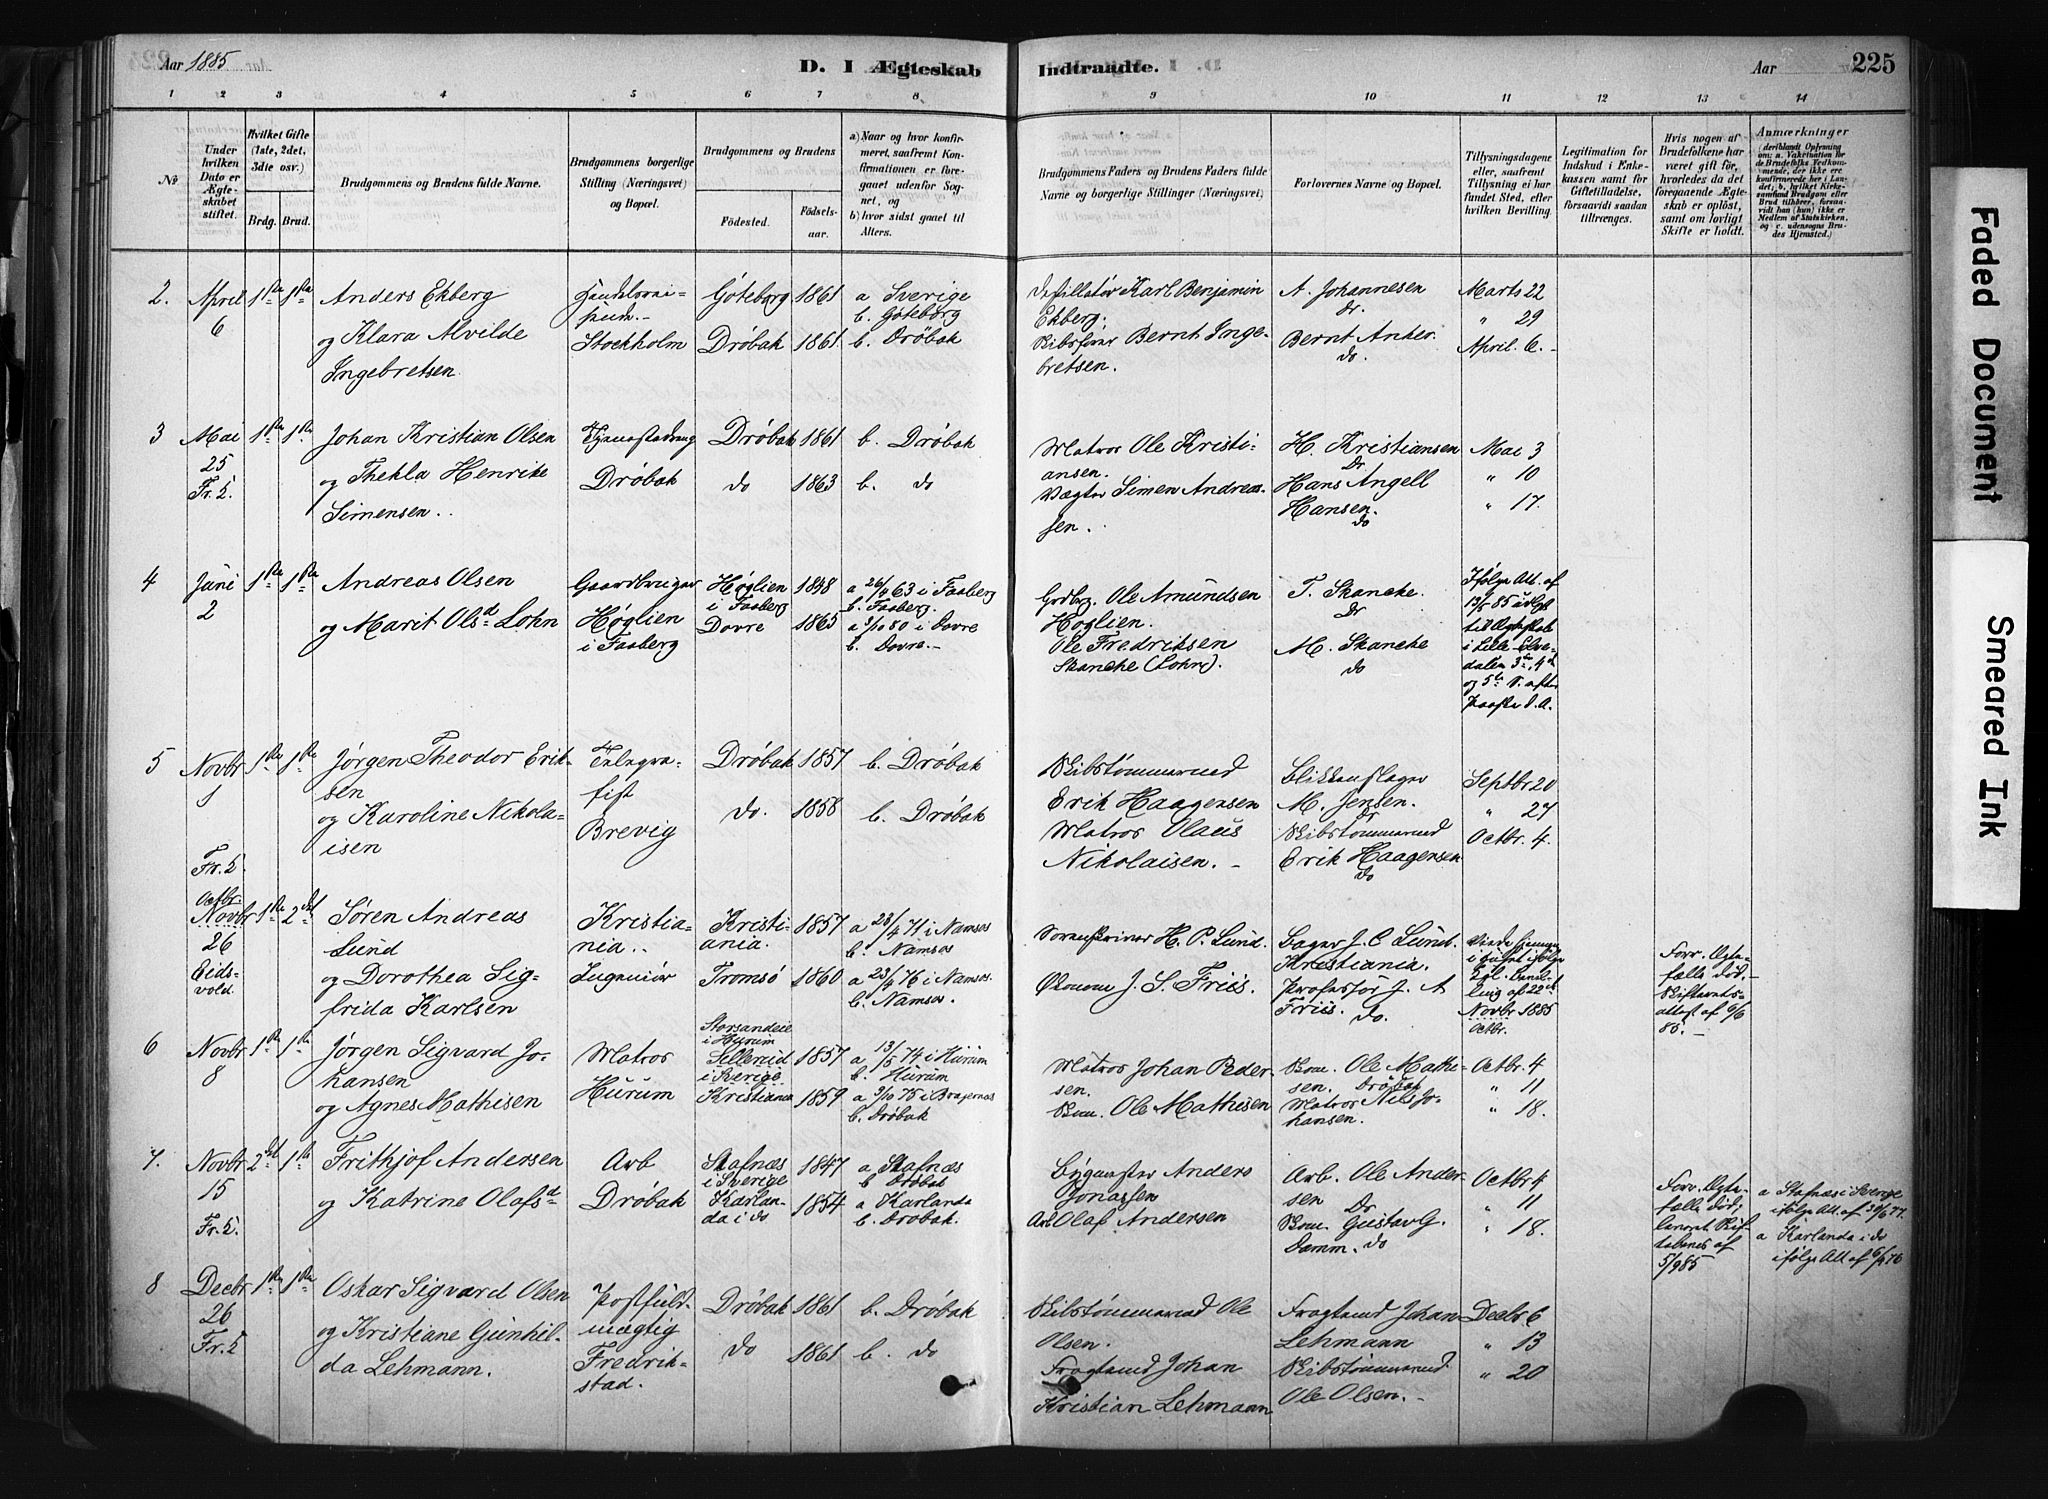 Aar 1885
D. I Ægteskab
Indtraadte.
Aar
225
1 2 3 4 5 6 7 8 9 10 11 12 13 14
No
Under hvilken Dato er Ægteskabet stiftet.
Hvilket Gifte (1ste, 2det, 3die osv.)
Brdg. Brud.
Brudgommens og Brudens fulde Navne.
Brudgommens borgerlige Stilling (Næringsvei) og Bopæl.
Brudgommens og Brudens
Födested.
Födselsaar.
a) Naar og hvor konfirmeret, saafremt Konfirmationen er foregaaet udenfor Sognet, og
b) hvor sidst gaaet til Alters.
Brudgommens Faders og Brudens Faders fulde Navne og borgerlige Stillinger (Næringsvei)
Forlovernes Navne og Bopæl.
Tillysningsdagene eller, saafremt Tillysning ei har fundet Sted, efter hvilken Bevilling.
Legitimation for Indskud i Enkekassen samt for Giftetilladelse, forsaavidt saadan tiltrænges.
Hvis nogen af Brudefolkene har været gift för, hvorledes da det foregaaende Ægteskab er oplöst, samt om lovligt Skifte er holdt.
Anmærkninger
2. April 6 1ste 1ste
Anders Ekberg
og Klara Alvilde
Ingebretsen
Stockholm
Göteborg 1861
Dröbak 1861
a Sverige
b. Göteborg
b. Dröbak
Destillatör Karl Benjamin
Ekberg.
Skibsförer Bernt Ingebretsen.
A. Johannesen
Dr.
Bernt Anker
do
Marts 22
" 29
April. 6.
3 Mai 25 Fr. 2. 1ste 1ste
Johan Kristian Olsen
og Thekla Henrike
Simensen.
Dröbak
Dröbak 1861
do 1863
b. Dröbak
b. do
Matros Ole Kristiansen.
Vægter Simen Andreassen.
H. Kristiansen
Dr
Hans Angell
Hansen.
do
Mai 3
" 10
" 17.
4 Juni 2 1ste 1ste
Andreas Olsen
og Marit Olsd Lohn
Gaardbruger
Höglien
i Faaberg
Höglien
i Faaberg 1848
Dovre 1865
a 26/4 63 i Faaberg
b. Faaberg.
a 3/10 80 i Dovre
b. Dovre.
Grdbrg. Ole Amundsen
Höglien.
Ole Fredriksen
Skancke (Lohn).
T. Skancke.
Dr
M. Skancke
do
Ifölge Att. af
13/5 85
i Lille Elvedalen 3die, 4de
og 5te S. efter
Paaske d. A.
5 Novbr 1 Fr. 2. 1ste 1ste
Jörgen Theodor Eriksen
og Karoline Nikolaisen
Telegrafist
Brevig
Dröbak 1857
do. 1858
b. Dröbak
b. Dröbak
Skibstömmermd
Erik Haagensen
Matros Olaus
Nikolaisen.
Blikkenslager
M. Jensen.
Dr
Skibstömmermd
Erik Haagensen
do
Septbr 20
" 27
Octbr. 4.
Octbr.
Novbr 26 Eidsvold. 1ste 2det
Sören Andreas
Lund
og Dorothea Sigfrida Karlsen
Kristiania.
Ingeniör
Kristiania. 1857
Tromsö 1860
a 23/4 71 i Namsos
b. Namsos
a 23/4 76 i Namsos.
b. Namsos.
Sorenskriver H. P. Lund.
Økonom J. S. Friis.
Bager J. C Lund.
Kristiania.
Professor J. A
Friis. do.
Novbr 1885
Octbr.
Forr. Ægtefælle död.
Skifteretsattest af 6/6
85.
6 Novbr 8 1ste 1ste
Jörgen Sigvard Johansen
og Agnes Mathisen
Matros
Hurum
Storsandeie
i Hurum
i Sverige 1857
Kristiania 1859
a 13/5 74 i Hurum
b. Hurum
a 3/10 75 i Bragernæs
b. Dröbak
Matros Johan Pedersen.
Ole Mathisen
Ole Mathisen. Dröbak
Matros Nils Johansen.
Octbr. 4
" 11
" 18.
7. Novbr 15 Fr. 2. 2det 1ste
Frithjof Andersen
og Katrine Olafsd
Arb
Dröbak
Stafnæs
i Sverige 1847
Karlanda i do 1854
a Stafnæs
b Dröbak
a Karlanda
b. Dröbak.
Bygmester Anders
Jonassen
Arb Olaf Andersen
Arb. Ole Andersen
Dr
Gustav G.
Damm. do
Octbr 4
" 11
" 18.
Forr. Ægtefælle död;
5/9 85
a Stafnæs i Sverige
ifölge Att. af 30/6 77.
a Karlanda i do
ifölge Att af 6/4 76
8 Decbr 26 Fr. 2 1ste 1ste
Oskar Sigvard Olsen
og Kristiane Gunhilda Lehmann.
Postfuldmægtig
Fredrikstad.
Dröbak 1861
do 1861
b. Dröbak
b. do
Skibstömmermd Ole
Olsen.
Fragtemd Johan
Kristian Lehmann
Fragtemd Johan
Lehmann
Skibstömmermd
Ole Olsen.
Decbr 6
" 13
" 20
Faded Document
Smeared Ink